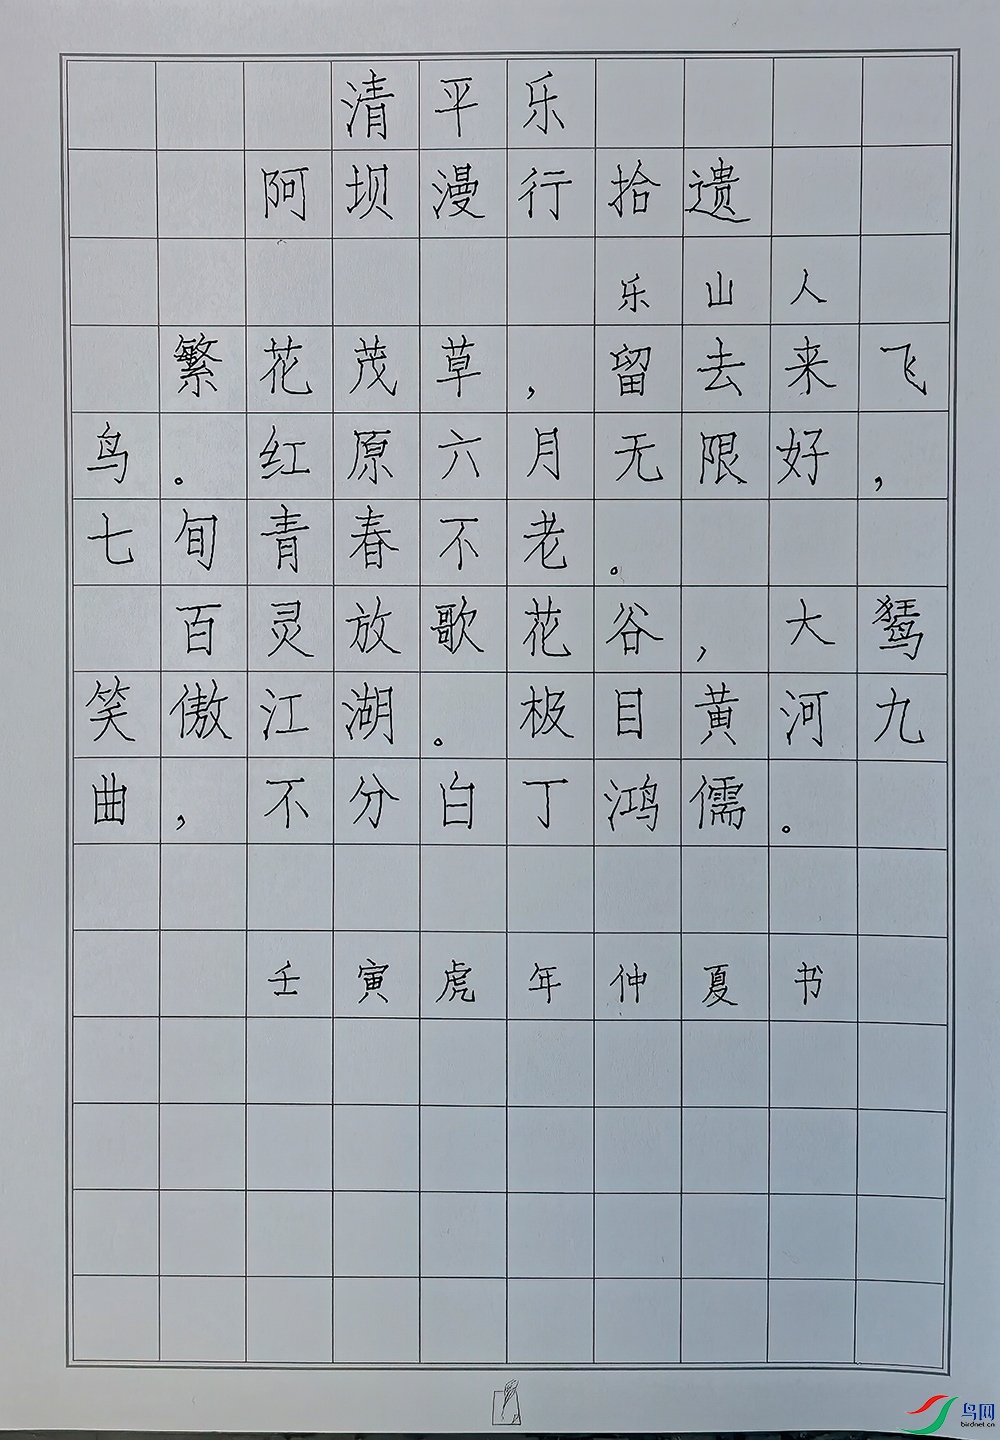 清平乐
阿坝漫行拾遗
乐山人
繁花茂草，留去来飞
鸟。红原六月无限好，
七旬青春不老。
百灵放歌花谷，大鵟
笑傲江湖。极目黄河九
曲，不分白丁鸿儒。
壬寅虎年仲夏书
鸟网
birdnet.cn